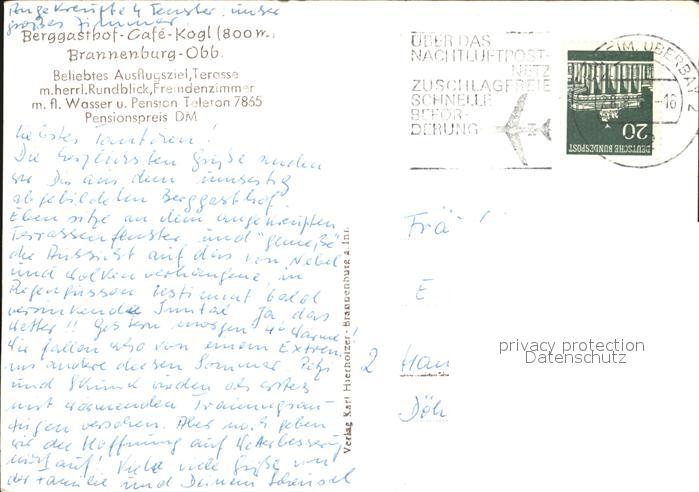 Angekreuzte 4 Fenster: unser
großes Zimmer.
Berggasthof-Café-Kogl (800 m.)
Brannenburg-Obb.
Beliebtes Ausflugsziel, Terosse
m. herrl. Rundblick, Fremdenzimmer
m. fl. Wasser u. Pension Teleton 7865
Pensionspreis DM
Liebstes Tantchen!
Die herzlichsten Grüße senden
wir Dir aus dem umseitig
abgebildeten Berggasthof.
Eben sitze an dem angekreuzten
Terrassenfenster und "genieße"
die Aussicht auf das von Nebel
und Wolken verhangene, in
Regengüssen bestimmt bald
versinkende Inntal. Ja, das
Wetter!! Gestern morgen 4° Wärme!
Wir fallen also von einem Extrem
ins andere diesen Sommer.
und wurden als erstes
mit wärmenden Trainingsan-
zügen versehen. Aber noch geben
wir die Hoffnung auf Wetterbesserung
nicht auf! Viele viele Grüße von
der Familie und Deinem
Verlag Karl Hierholzer-Brannenburg a. Inn
ÜBER DAS
NACHTLUFTPOST-
NETZ
ZUSCHLAGFREIE
SCHNELLE
BEFÖR-
DERUNG
HEIM, OBERBAY
2
-16
20
DEUTSCHE BUNDESPOST
Frä
E
2 Han
Döh
privacy protection
Datenschutz